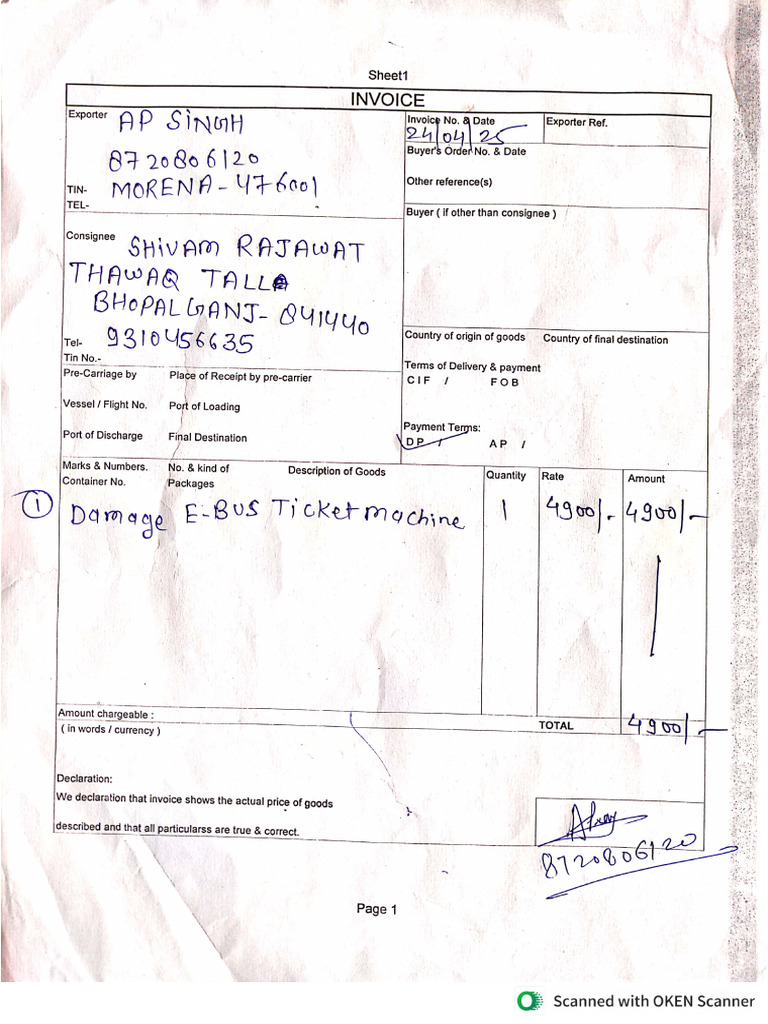 Sheet1
INVOICE
Exporter AP SiNGH
8720806120
TIN- MORENA-476001
TEL-
Invoice No. & Date
24/04/25
Exporter Ref.
Buyer's Order No. & Date
Other reference(s)
Buyer ( if other than consignee )
Consignee SHiVAM RAJAWAT
THAWAQ TALLA
BHOPALGANJ-841440
Tel- 9310456635
Tin No.-
Country of origin of goods Country of final destination
Terms of Delivery & payment
CIF / FOB
Payment Terms:
DP / AP /
Pre-Carriage by Place of Receipt by pre-carrier
Vessel / Flight No. Port of Loading
Port of Discharge Final Destination
Marks & Numbers. No. & kind of Description of Goods Quantity Rate Amount
Container No. Packages
1 Damage E-BUS Ticket machine 1 4900/- 4900/-
Amount chargeable :
( in words / currency ) TOTAL 4900/-
Declaration:
We declaration that invoice shows the actual price of goods
described and that all particularss are true & correct.
8720806120
Page 1
Scanned with OKEN Scanner